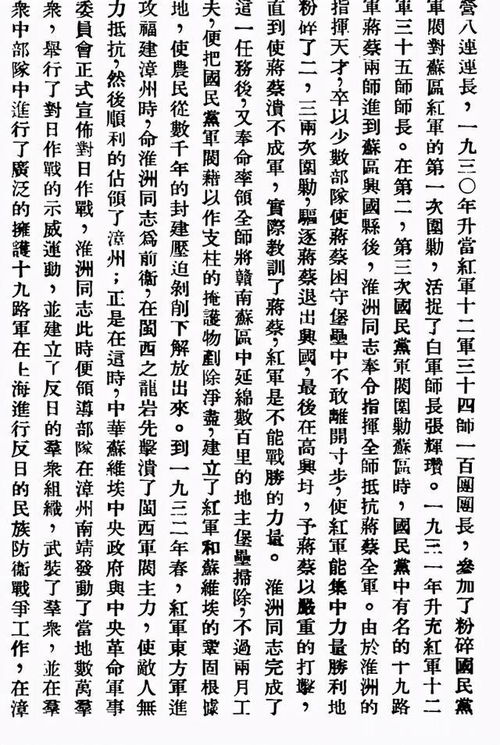 營八連連長，一九三〇年升當紅軍十二軍三十四師一百團團長，參加了粉碎國民黨
軍閥對蘇區紅軍的第一次圍勦，活捉了白軍師長張輝瓚。一九三一年升充紅軍十二
軍三十五師師長。在第二，第三次國民黨軍閥圍勦蘇區時，國民黨中有名的十九路
軍蔣蔡兩師進到蘇區興國縣後，淮洲同志奉令指揮全師抵抗蔣蔡全軍。由於淮洲的
指揮天才，卒以少數部隊使蔣蔡困守堡壘中不敢離開寸步，使紅軍能集中力量勝利地
粉碎了二，三兩次圍勦，驅逐蔣蔡退出興國，最後在高興圩，予蔣蔡以嚴重的打擊，
直到使蔣蔡潰不成軍，實際教訓了蔣蔡，紅軍是不能戰勝的力量。　淮洲同志完成了
這一任務後，又奉命率領全師將贛南蘇區中延綿數百里的地主堡壘掃除，不過兩月工
夫，便把國民黨軍閥藉以作支柱的掩護物剷除淨盡，建立了紅軍和蘇維埃的鞏固根據
地，使農民從數千年的封建壓迫剝削下解放出來。到一九三二年春，紅軍東方軍進
攻福建漳州時，命淮洲同志爲前衛，在閩西之龍岩先擊潰了閩西軍閥主力，使敵人無
力抵抗，然後順利的佔領了漳州；正是在這時，中華蘇維埃中央政府與中央革命軍事
委員會正式宣佈對日作戰，淮洲同志此時便領導部隊在漳州南靖發動了當地數萬羣
衆，舉行了對日作戰的示威運動，並建立了反日的羣衆組織，武裝了羣衆，並在羣
衆中部隊中進行了廣泛的擁護十九路軍在上海進行反日的民族防衛戰爭工作，在漳